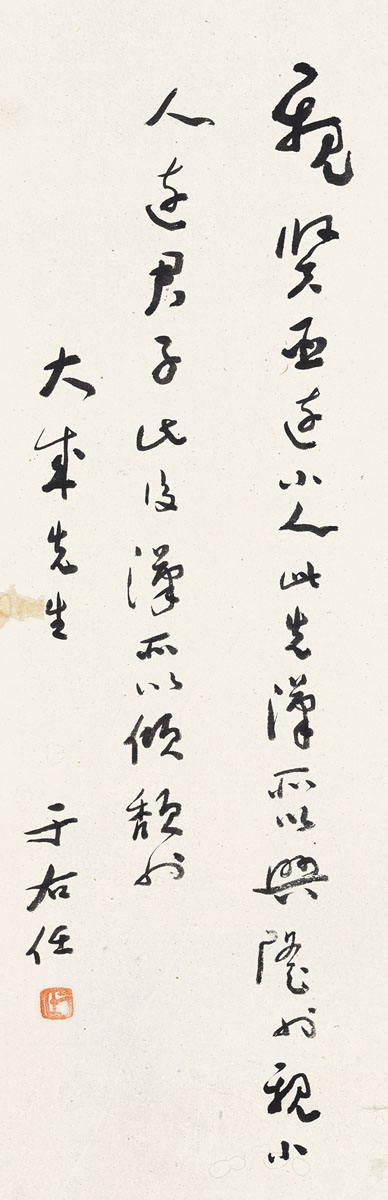 親賢臣遠小人此先漢所以興隆也親小
人遠君子此後漢所以傾頹也
大成先生
于右任